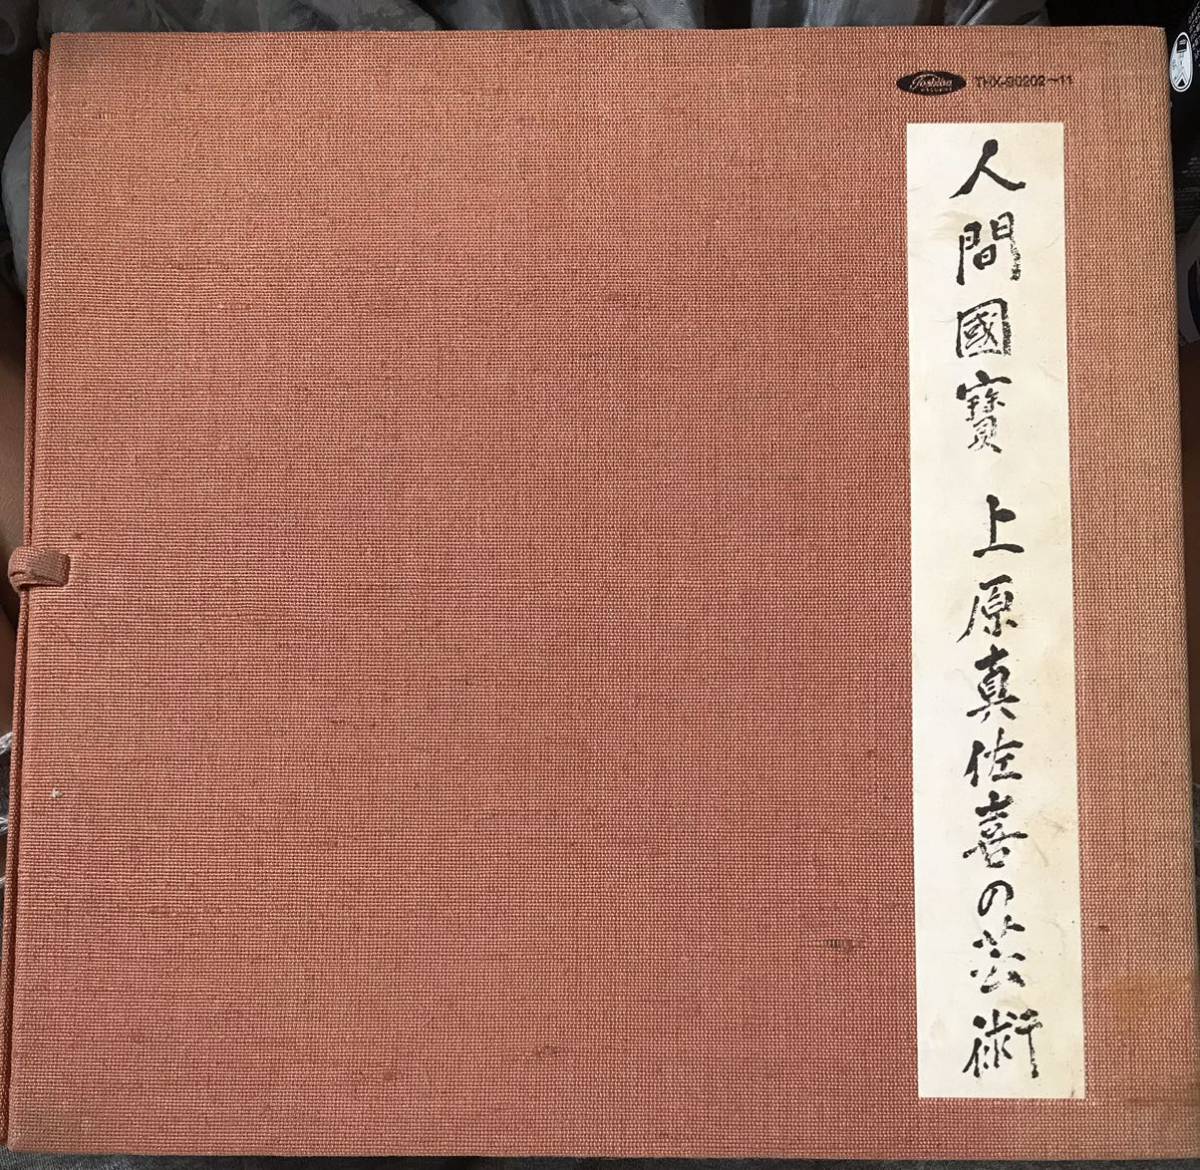 Toshiba
RECORDS
THX-90202〜11
人間國寶 上原真佐喜の芸術